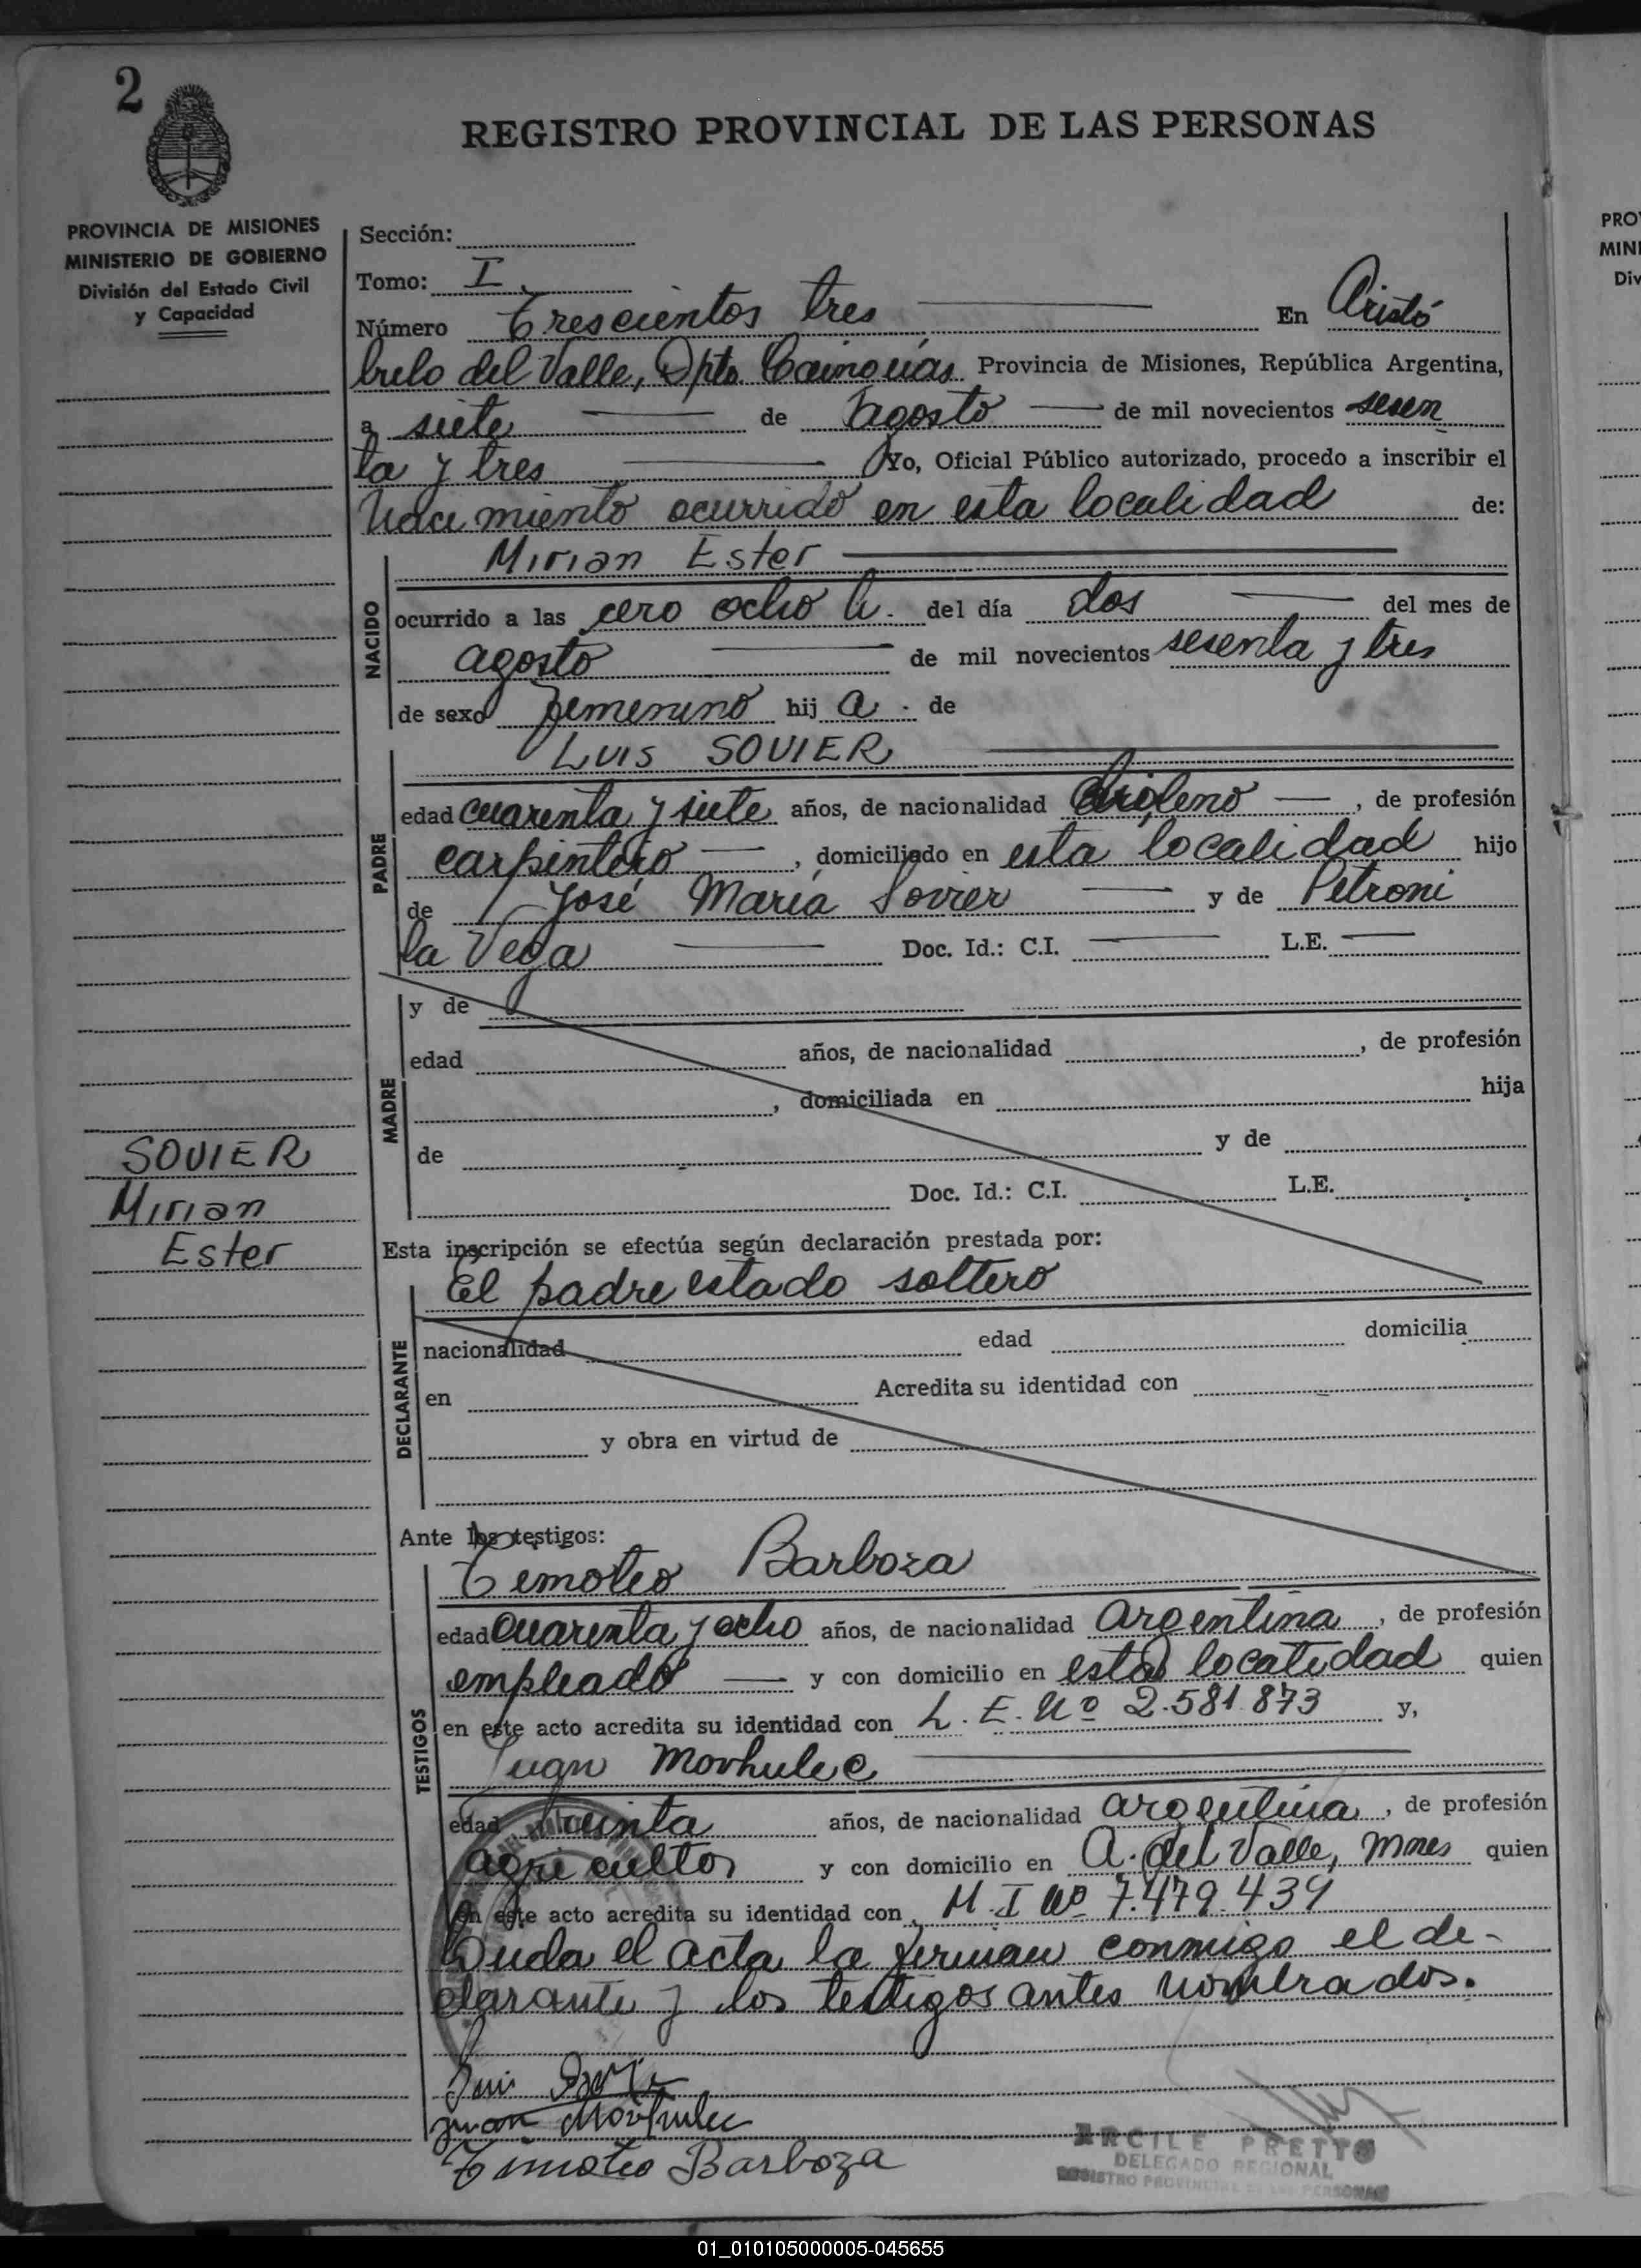 2
REGISTRO PROVINCIAL DE LAS PERSONAS
PROVINCIA DE MISIONES
MINISTERIO DE GOBIERNO
División del Estado Civil
y Capacidad
Sección:
Tomo: I.
Número Trescientos tres En Aristó
bulo del Valle, Dpto. Cainguás Provincia de Misiones, República Argentina,
a siete de agosto de mil novecientos sesen
ta y tres Yo, Oficial Público autorizado, procedo a inscribir el
Nacimiento ocurrido en esta localidad de:
NACIDO
Mirian Ester
ocurrido a las cero ocho h. del día dos del mes de
agosto de mil novecientos sesenta y tres
de sexo femenino hij a. de
PADRE
LUIS SOVIER
edad cuarenta y siete años, de nacionalidad chileno, de profesión
carpintero, domiciliado en esta localidad hijo
de José María Sovier y de Petroni
la Vega Doc. Id.: C.I. L.E.
MADRE
y de
edad años, de nacionalidad , de profesión
, domiciliada en hija
de y de
Doc. Id.: C.I. L.E.
SOVIER
Mirian
Ester
Esta inscripción se efectúa según declaración prestada por:
DECLARANTE
El padre estado soltero
nacionalidad edad domicilia
en Acredita su identidad con
y obra en virtud de
Ante los testigos:
TESTIGOS
Timoteo Barboza
edad cuarenta y ocho años, de nacionalidad argentina, de profesión
empleado y con domicilio en esta localidad quien
en este acto acredita su identidad con L.E. Nº 2.581.873 y,
Juan Movhulec
edad treinta años, de nacionalidad argentina, de profesión
agricultor y con domicilio en A. del Valle, Mnes quien
en este acto acredita su identidad con M.I Nº 7.479.439
el acta la firman conmigo el de-
clarante y los testigos antes nombrados.
Luis
Juan Movhulec
Timoteo Barboza
ARCILE PRETTO
DELEGADO REGIONAL
REGISTRO PROVINCIAL DE LAS PERSONAS
PRO
MINI
Div
01_010105000005-045655